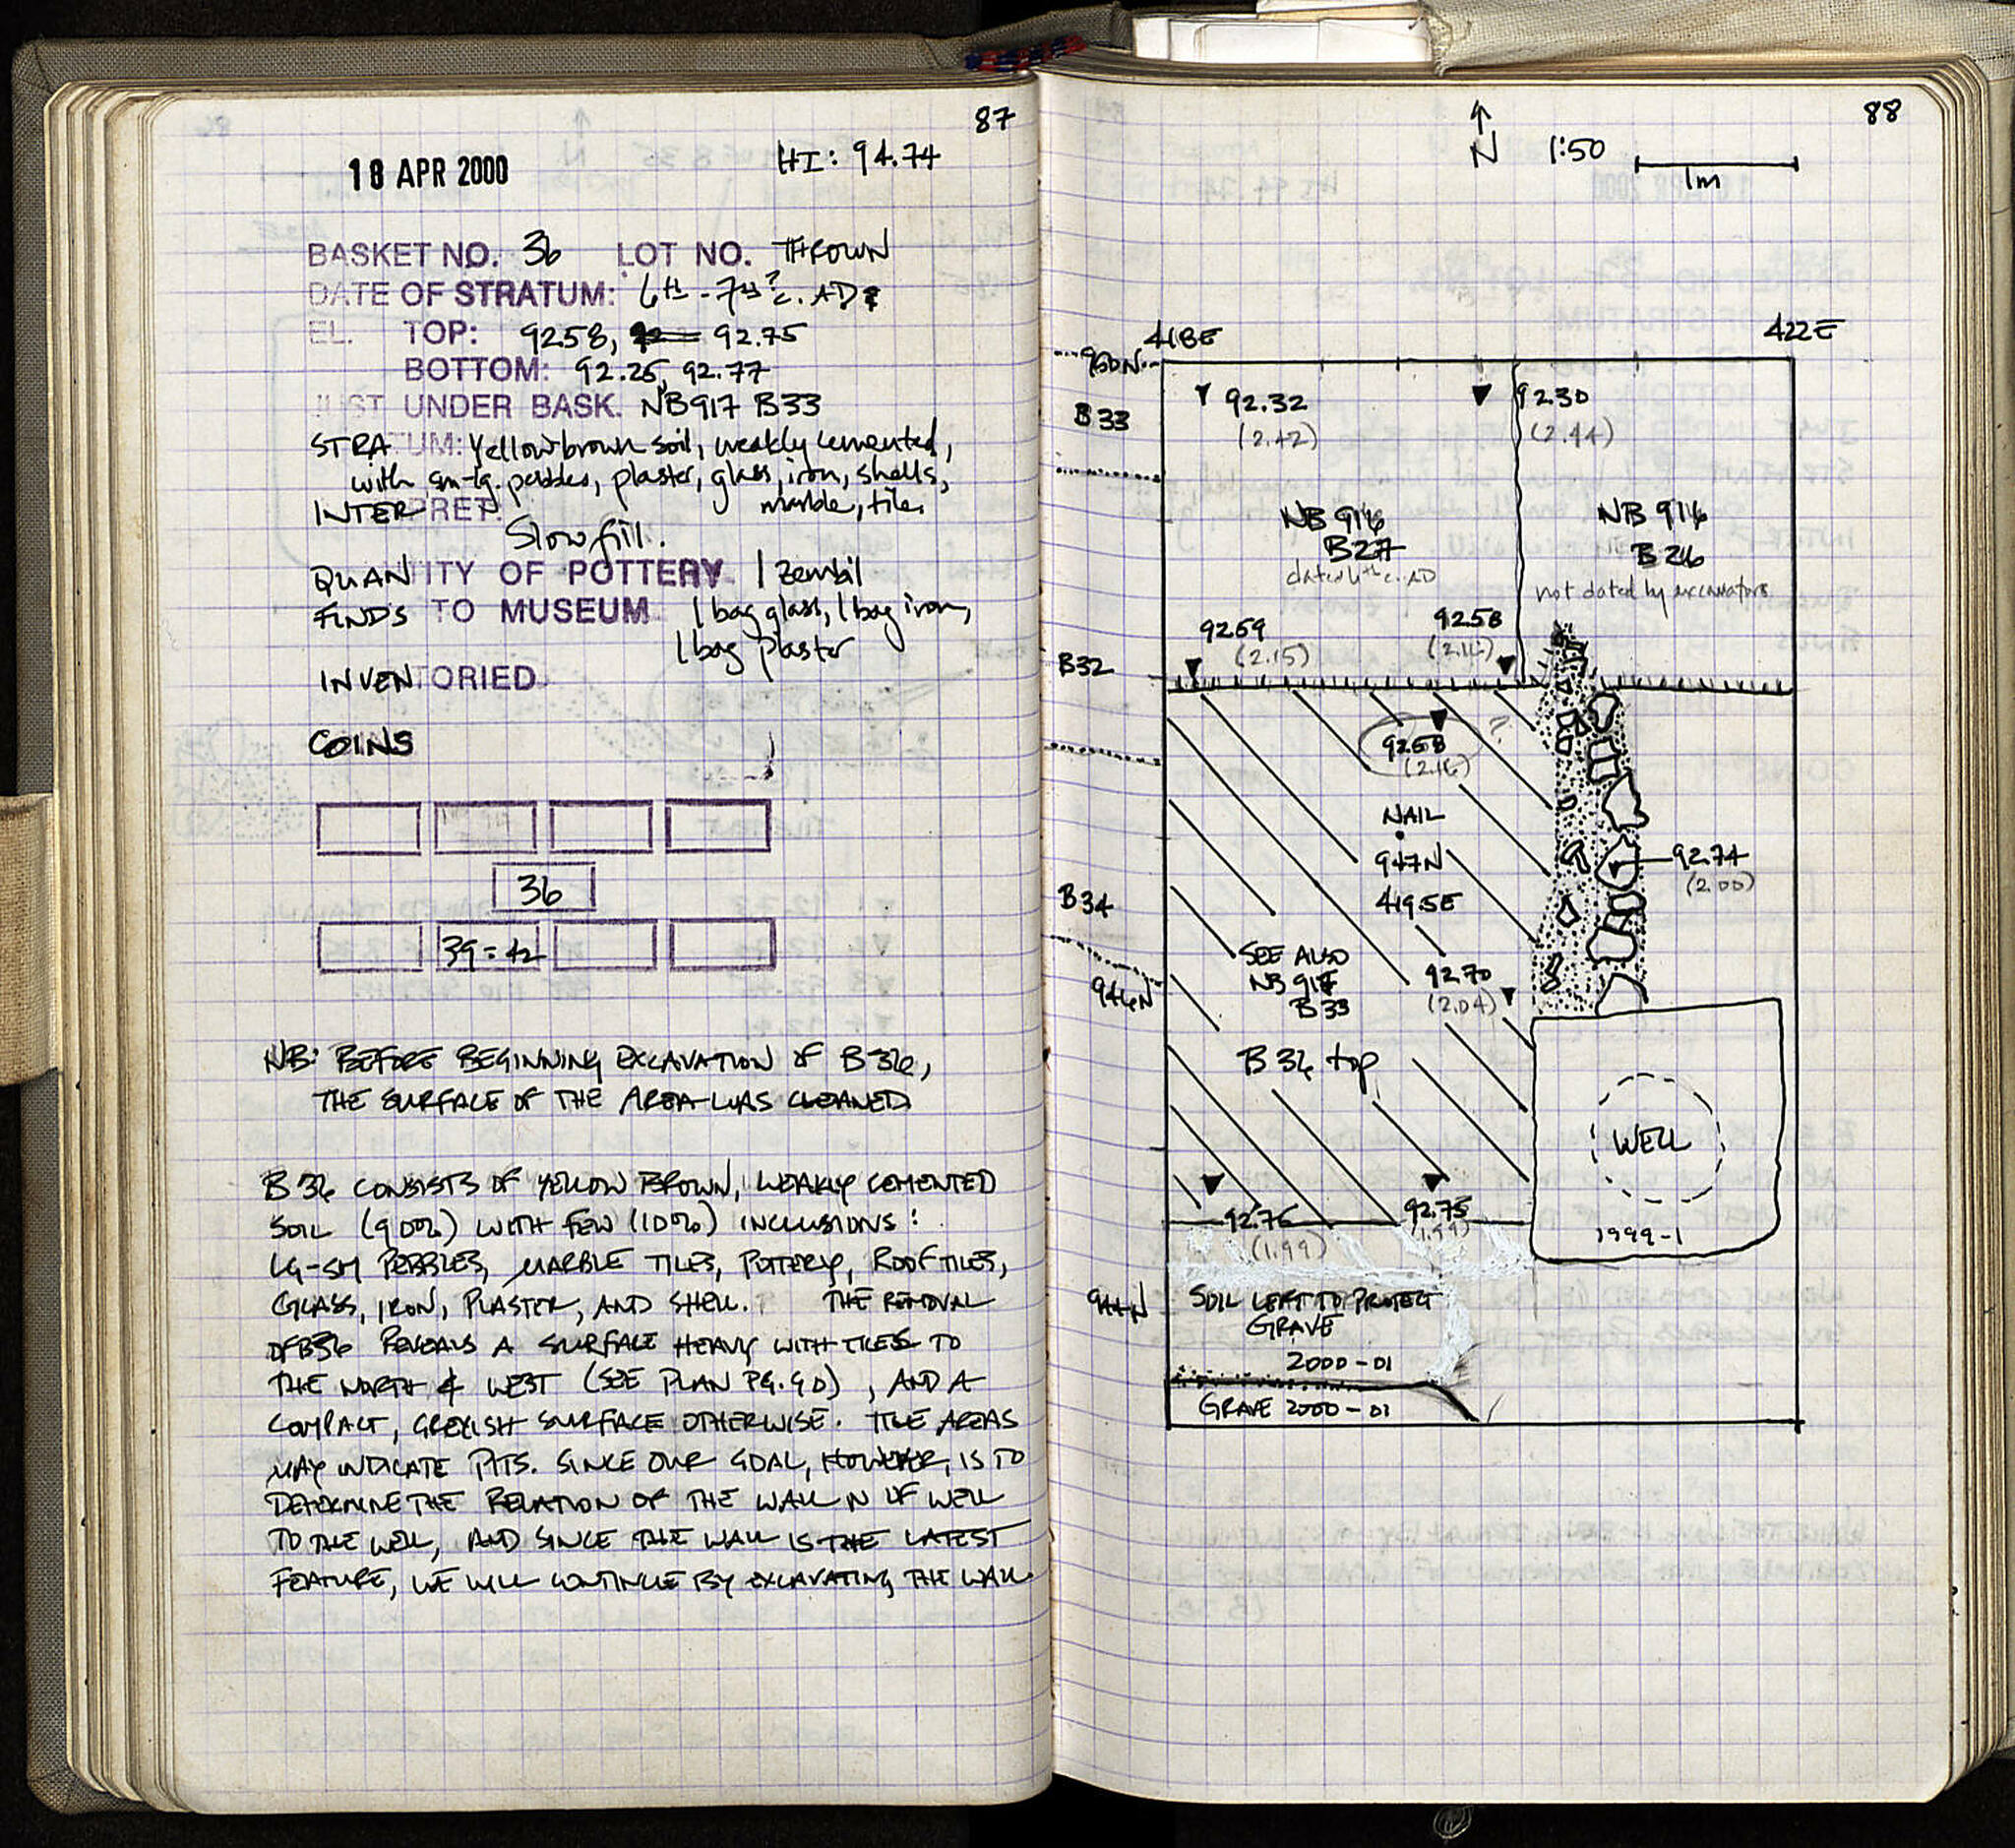 87
18 APR 2000
HI: 94.74
BASKET NO. 36 LOT NO. THROWN
DATE OF STRATUM: 6TH - 7TH? C. AD
EL. TOP: 92.58, 92.75
BOTTOM: 92.25, 92.77
JUST UNDER BASK. NB917 B33
STRATUM: Yellow brown soil, weakly cemented,
with sm-lg. pebbles, plaster, glass, iron, shells,
marble, tile.
INTERPRET:
Slow fill.
QUANTITY OF POTTERY 1 zembil
FINDS TO MUSEUM 1 bag glass, 1 bag iron,
1 bag plaster
INVENTORIED
COINS
36
39 = 42
NB: BEFORE BEGINNING EXCAVATION OF B36,
THE SURFACE OF THE AREA WAS CLEANED
B 36 CONSISTS OF YELLOW BROWN, WEAKLY CEMENTED
SOIL (90%) WITH FEW (10%) INCLUSIONS:
LG-SM PEBBLES, MARBLE TILES, POTTERY, ROOF TILES,
GLASS, IRON, PLASTER, AND SHELL. THE REMOVAL
OF B36 REVEALS A SURFACE HEAVY WITH TILES TO
THE NORTH & WEST (SEE PLAN PG. 90), AND A
COMPACT, GREYISH SURFACE OTHERWISE. TILE AREAS
MAY INDICATE PITS. SINCE OUR GOAL, HOWEVER, IS TO
DETERMINE THE RELATION OF THE WALL N OF WELL
TO THE WELL, AND SINCE THE WALL IS THE LATEST
FEATURE, WE WILL CONTINUE BY EXCAVATING THE WALL.
88
N 1:50
1m
418E
422E
950N
B33
92.32
(2.42)
92.30
(2.44)
NB 916
B27
dated 6th c. AD
NB 916
B26
not dated by excavators
92.59
(2.15)
92.58
(2.16)
B32
92.58
(2.16)
?
NAIL
947N
419.5E
92.74
(2.00)
B34
SEE ALSO
NB 917
B33
92.70
(2.04)
946N
B 36 top
WELL
1999-1
92.75
(1.99)
92.75
(1.99)
944N
SOIL LEFT TO PROTECT
GRAVE
2000-01
GRAVE 2000-01